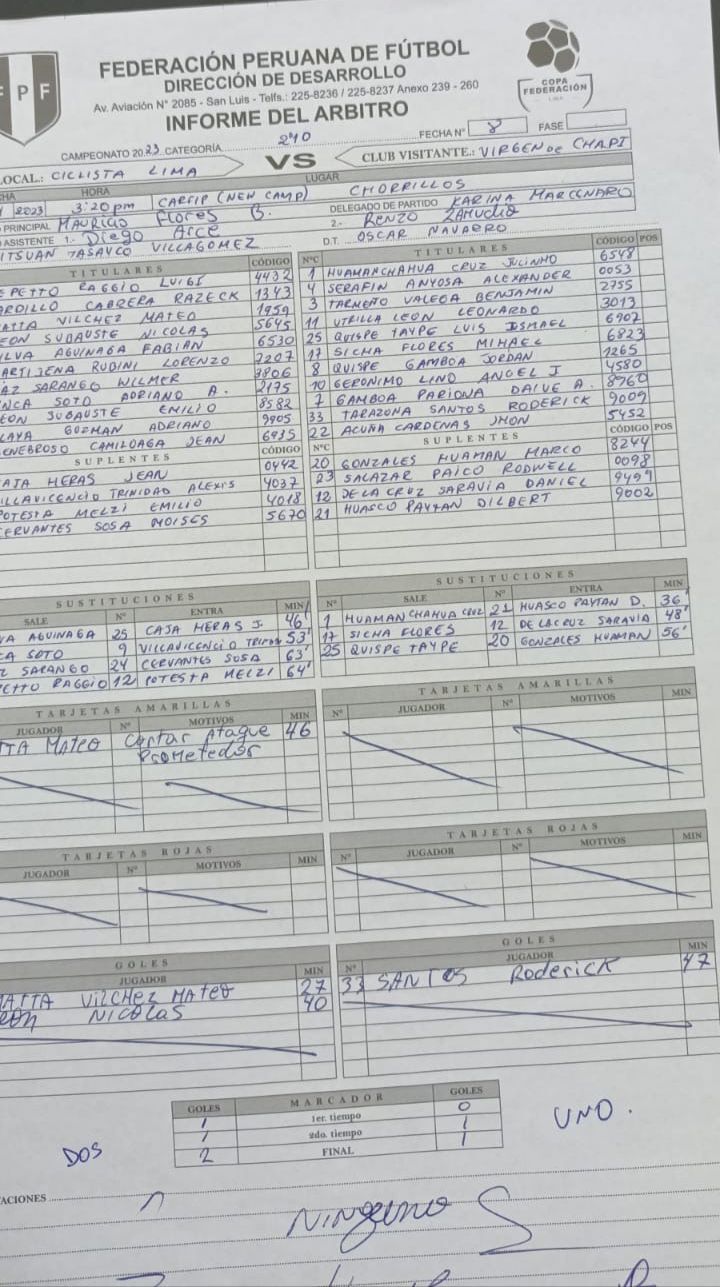 FEDERACIÓN PERUANA DE FÚTBOL
DIRECCIÓN DE DESARROLLO
P F
Av. Aviación N° 2085 - San Luis - Telfs.: 225-8236 / 225-8237 Anexo 239 - 260
COPA FEDERACIÓN
INFORME DEL ARBITRO
CAMPEONATO 2023 CATEGORÍA FECHA N° 8 FASE
LOCAL.: CICLISTA LIMA VS CLUB VISITANTE.: VIRGEN DE CHAPI
HORA LUGAR
2023 3:20 pm CARFIP (NEW CAMP) CHORRILLOS
PRINCIPAL MAURICIO Flores B. DELEGADO DE PARTIDO KARINA MARCENARO
ASISTENTE 1.- Diego Arce 2.- RENZO ZAMUDIO
VILLAGOMEZ D.T. OSCAR NAVARRO
TITULARES CÓDIGO N°C TITULARES CÓDIGO POS
PETTO RAGGIO LUIGI 4432 1 HUAMANCHAHUA CRUZ JULINHO 6548
ARDILLO CABRERA RAZECK 1343 4 SERAFIN ANYOSA ALEXANDER 0053
ATTA VILCHEZ MATEO 1959 3 TARMEÑO VALEGA BENJAMIN 2755
EON SUBAUSTE NICOLAS 5645 11 UTRILLA LEON LEONARDO 3013
LVA AGUINAGA FABIAN 6530 25 QUISPE TAYPE LUIS ISMAEL 6907
ARTIJENA RUDINI LORENZO 2207 17 SICHA FLORES MIHAEL 6823
AZ SARANGO WILMER 3806 8 QUISPE GAMBOA JORDAN 1265
NCA SOTO ADRIANO A. 2175 10 GERONIMO LINO ANGEL J 4580
EON SUBAUSTE EMILIO 8582 7 GAMBOA PARIONA DAIVE A. 8760
LAYA GUZMAN ADRIANO 9905 33 TARAZONA SANTOS RODERICK 9009
ENEBROSO CAMILOAGA JEAN 6935 22 ACUÑA CARDENAS JHON 5452
SUPLENTES CÓDIGO N°C SUPLENTES CÓDIGO POS
AJA HERAS JEAN 0442 20 GONZALES HUAMAN MARCO 8244
ILLAVICENCIO TRINIDAD ALEXIS 4037 23 SALAZAR PAICO RODWELL 0098
POTESTA MELZI EMILIO 4018 12 DE LA CRUZ SARAVIA DANIEL 9499
ERVANTES SOSA MOISES 5670 21 HUASCO PAYTAN DILBERT 9002
SUSTITUCIONES SUSTITUCIONES
SALE N° ENTRA MIN N° SALE N° ENTRA MIN
VA AGUINAGA 25 CAJA HERAS J. 46' 1 HUAMANCHAHUA CRUZ 21 HUASCO PAYTAN D. 36'
CA SOTO 9 VILLAVICENCIO 53' 17 SICHA FLORES 12 DE LA CRUZ SARAVIA 48'
Z SARANGO 24 CERVANTES SOSA 63' 25 QUISPE TAYPE 20 GONZALES HUAMAN 56'
PETTO RAGGIO 12 POTESTA MELZI 64'
TARJETAS AMARILLAS TARJETAS AMARILLAS
JUGADOR N° MOTIVOS MIN N° JUGADOR N° MOTIVOS MIN
TTA MATEO Cortar Ataque 46
Prometedor
TARJETAS ROJAS TARJETAS ROJAS
JUGADOR N° MOTIVOS MIN N° JUGADOR N° MOTIVOS MIN
GOLES GOLES
JUGADOR MIN N° JUGADOR MIN
MATTA VilCHEZ MATEO 27 33 SANTOS Roderick 47
EON NICOLAS 40
GOLES MARCADOR GOLES
1 1er. tiempo 0
1 2do. tiempo 1
2 FINAL 1
DOS
UNO.
ACIONES
NINGUNO